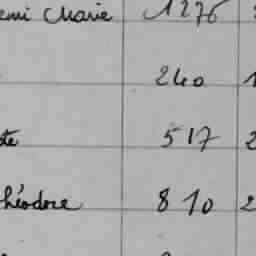 emi Marie 1276
240
te 517
héodore 810